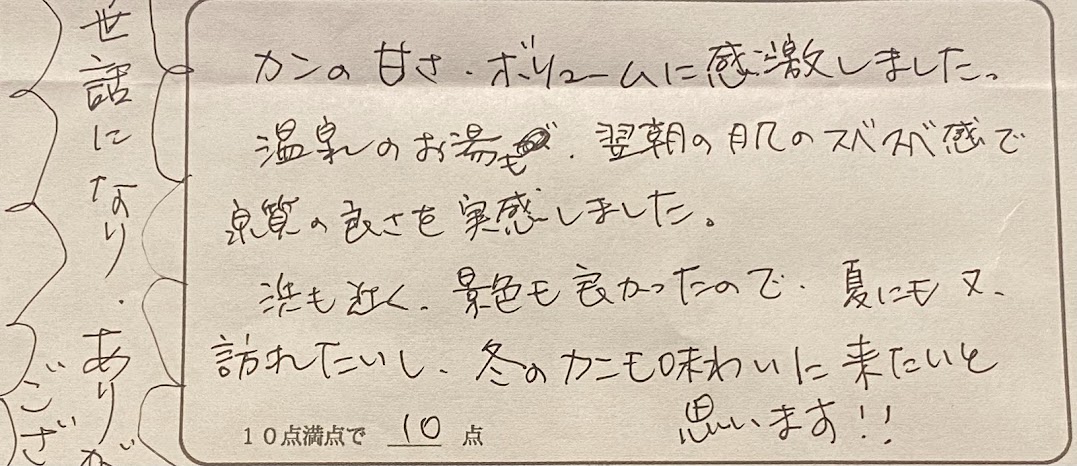 カニの甘さ、ボリュームに感激しました。
温泉のお湯も、翌朝の肌のスベスベ感で
泉質の良さを実感しました。
浜も近く、景色も良かったので、夏にも又、
訪れたいし、冬のカニも味わいに来たいと
思います!!
10点満点で 10 点
世話になり、ありが
ござ